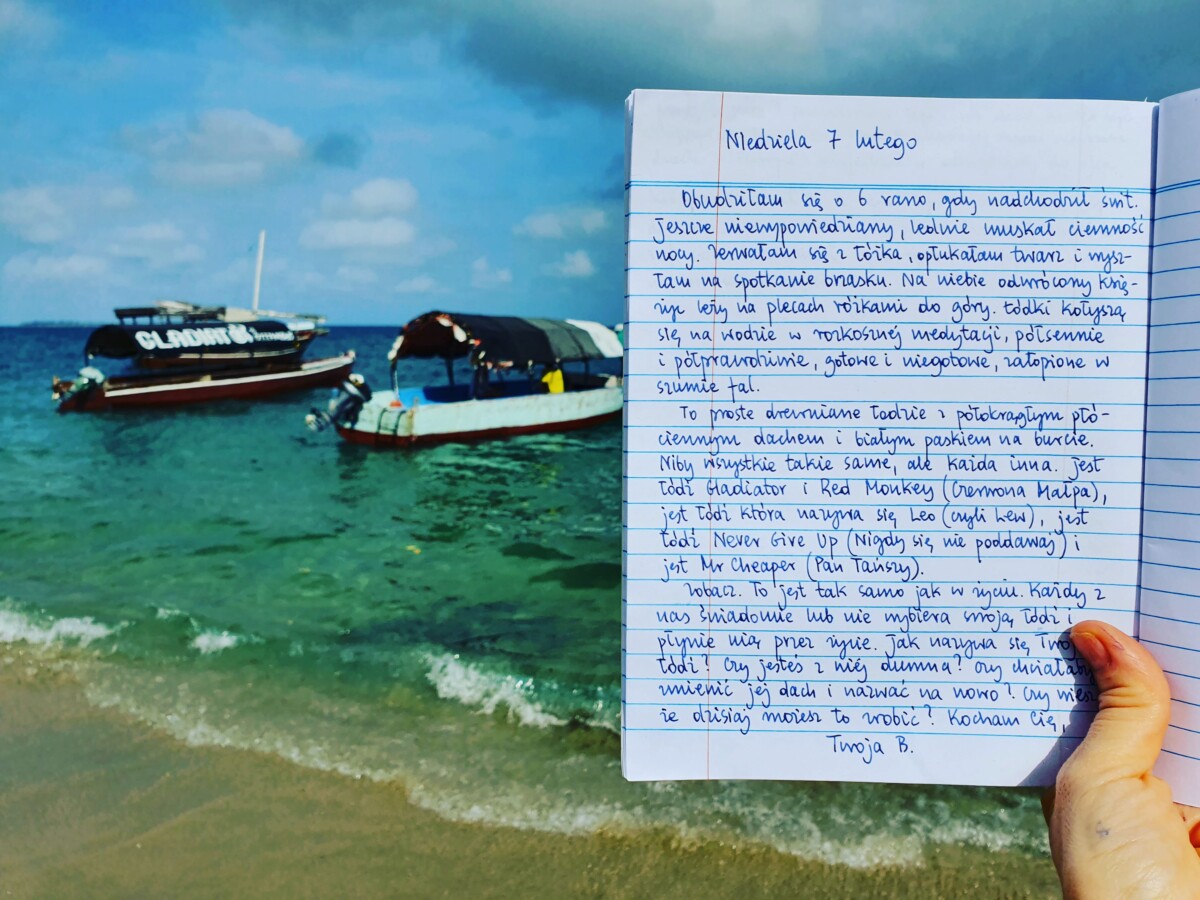 GLADIAT R
NIedziela 7 lutego
Obudziłam się o 6 rano, gdy nadchodził świt.
Jeszcze niewypowiedziany, ledwie muskał ciemność
nocy. Zerwałam się z łóżka, opłukałam twarz i wysz-
łam na spotkanie brzasku. Na niebie odwrócony księ-
życ leży na plecach różkami do góry. Łódki kołyszą
się na wodzie w rozkosznej medytacji, półsennie
i półprawdziwie, gotowe i niegotowe, zatopione w
szumie fal.
To proste drewniane łodzie z półokrągłym płó-
ciennym dachem i białym paskiem na burcie.
Niby wszystkie takie same, ale każda inna. Jest
łódź Gladiator i Red Monkey (Czerwona Małpa),
jest łódź która nazywa się Leo (czyli Lew), jest
łódź Never Give Up (Nigdy się nie poddawaj) i
jest Mr Cheaper (Pan Tańszy).
Zobacz. To jest tak samo jak w życiu. Każdy z
nas świadomie lub nie wybiera swoją łódź i
płynie nią przez życie. Jak nazywa się Twoj
łódź? Czy jesteś z niej dumna? Czy chciałab
zmienić jej dach i nazwać na nowo? Czy wiesz
że dzisiaj możesz to zrobić? Kocham Cię,
Twoja B.